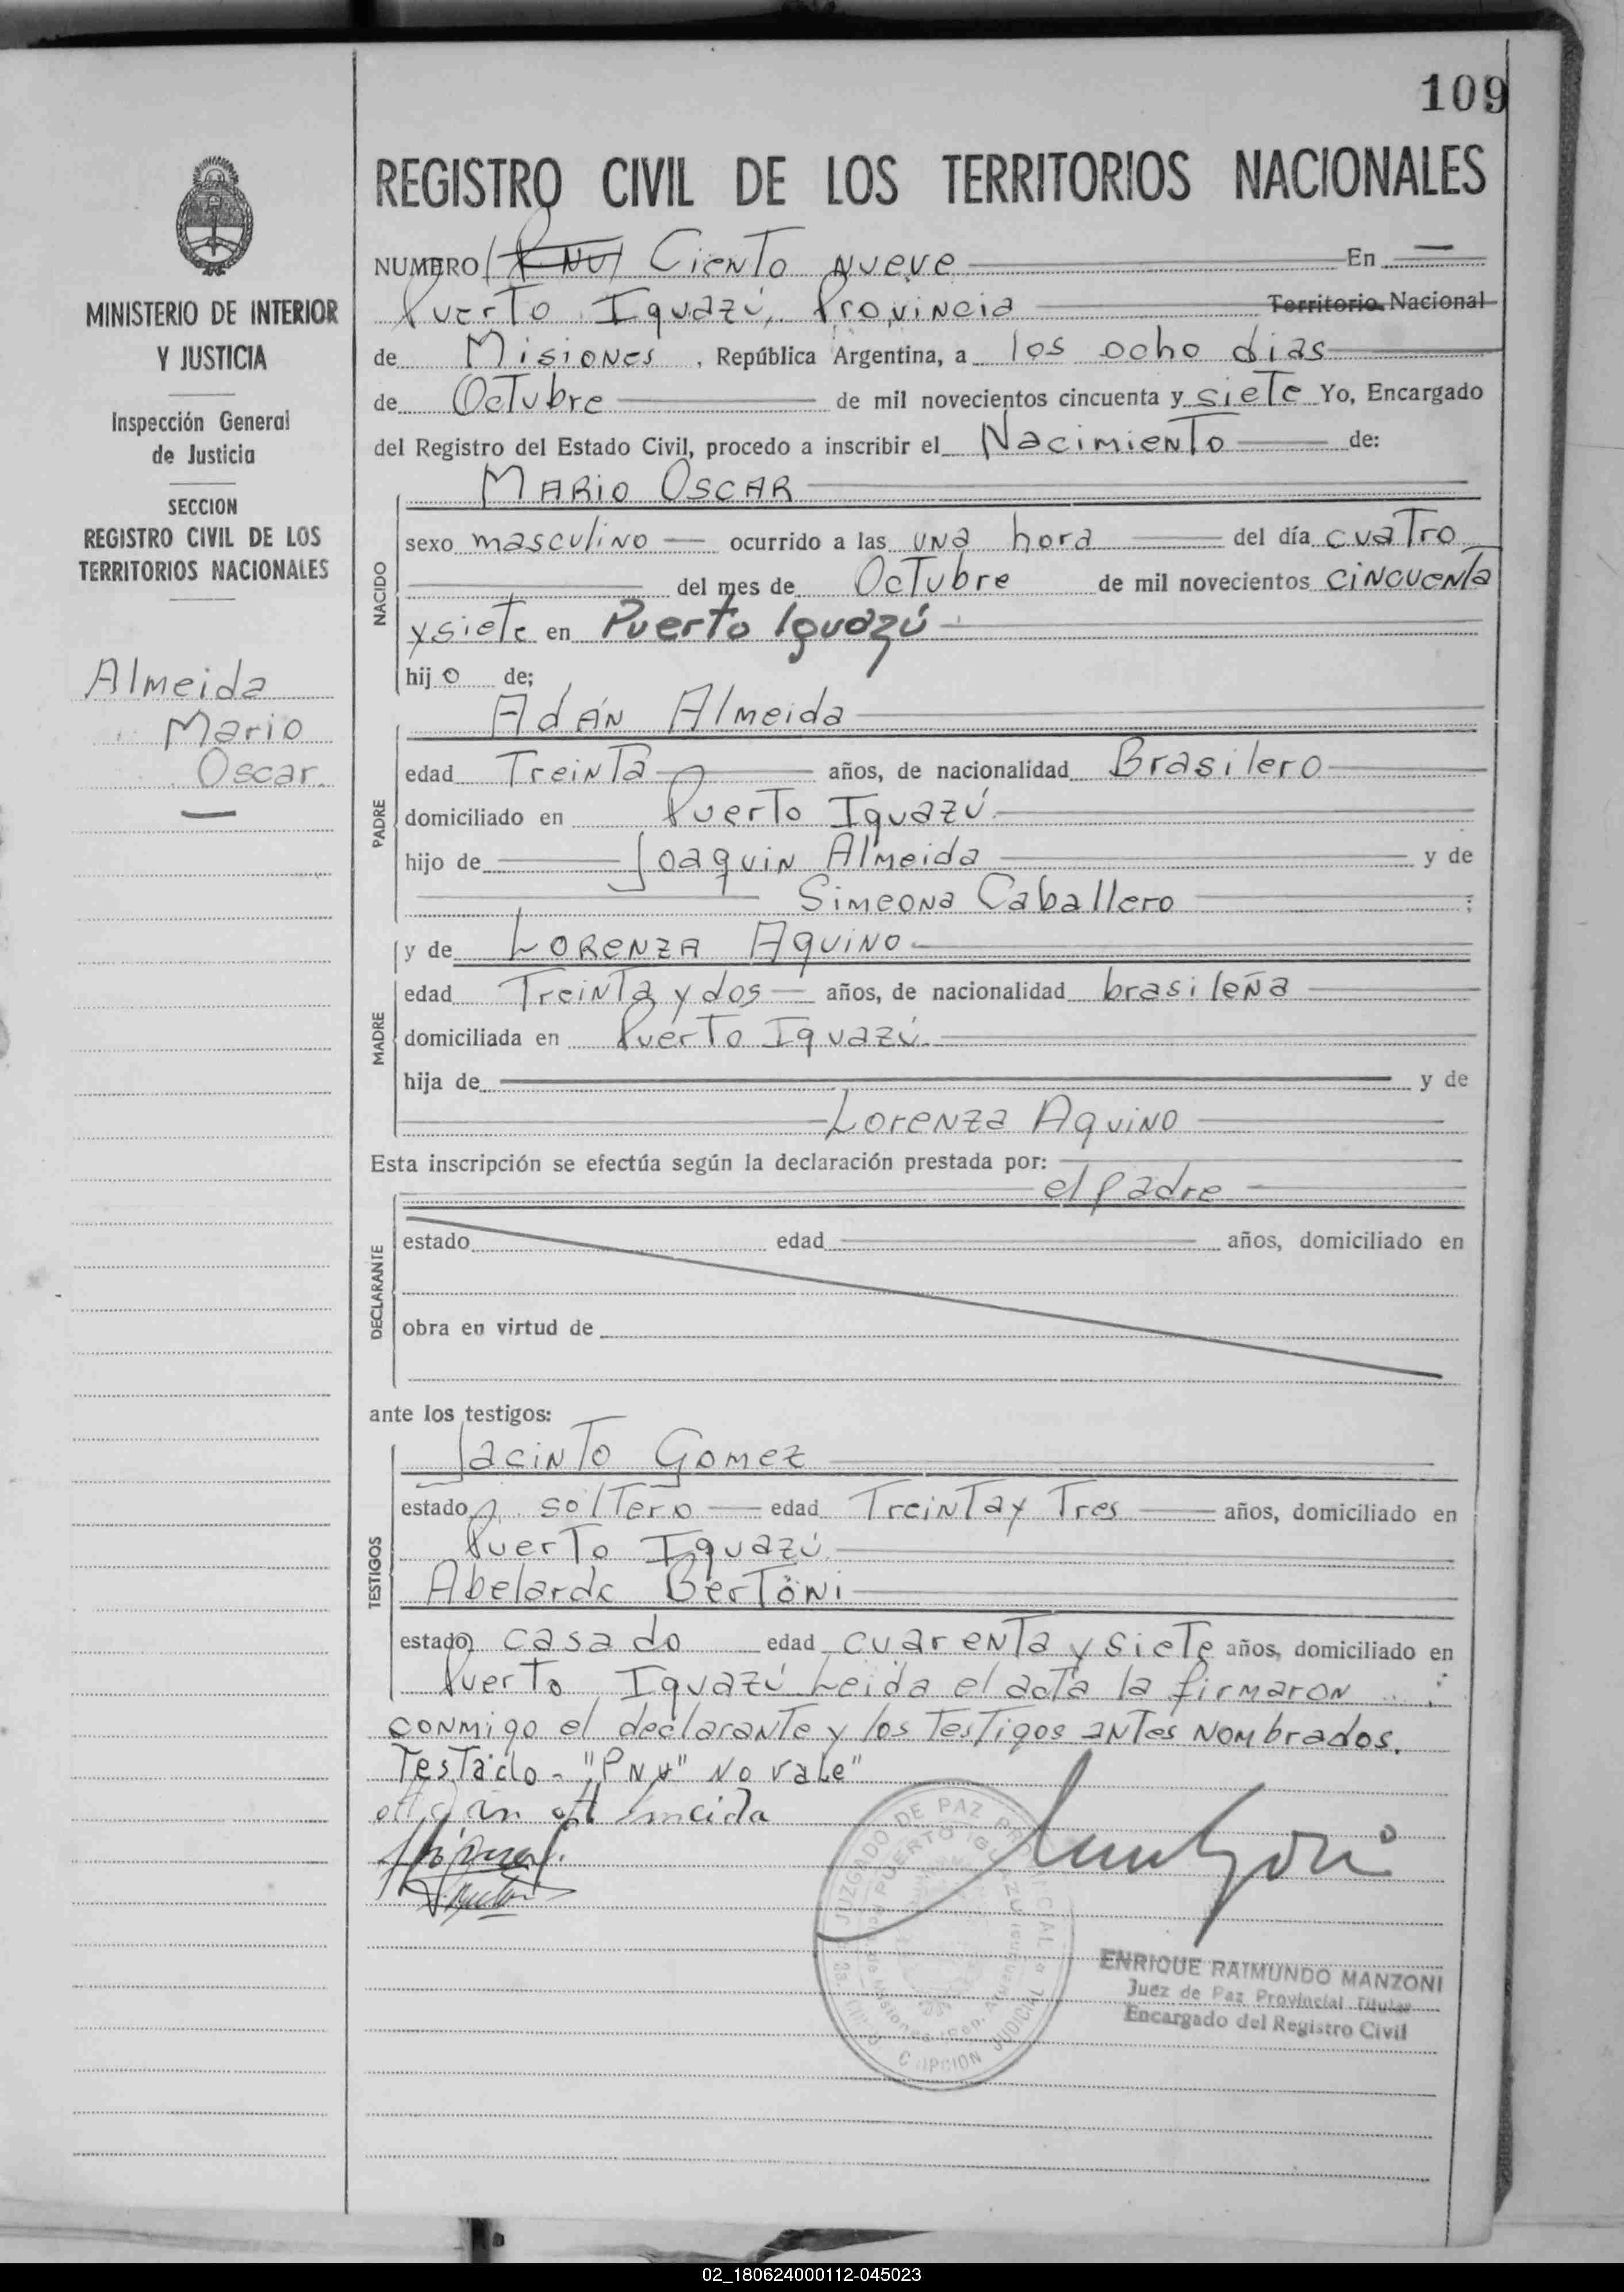 109
REGISTRO CIVIL DE LOS TERRITORIOS NACIONALES
MINISTERIO DE INTERIOR
Y JUSTICIA
Inspección General
de Justicia
SECCION
REGISTRO CIVIL DE LOS
TERRITORIOS NACIONALES
Almeida
Mario
Oscar.
NUMERO Ciento nueve En
Puerto Iguazú, Provincia Territorio Nacional
de Misiones, República Argentina, a los ocho dias
de Octubre de mil novecientos cincuenta y siete Yo, Encargado
del Registro del Estado Civil, procedo a inscribir el Nacimiento de:
MARIO OSCAR
NACIDO
sexo masculino ocurrido a las una hora del día cuatro
del mes de Octubre de mil novecientos cincuenta
y siete en Puerto Iguazú
hijo de;
Adán Almeida
PADRE
edad Treinta años, de nacionalidad Brasilero
domiciliado en Puerto Iguazú.
hijo de Joaquin Almeida y de
Simeona Caballero ;
y de LORENZA AQUINO
MADRE
edad Treinta y dos años, de nacionalidad brasileña
domiciliada en Puerto Iguazú.
hija de y de
Lorenza Aquino
Esta inscripción se efectúa según la declaración prestada por:
el padre
DECLARANTE
estado edad años, domiciliado en
obra en virtud de
ante los testigos:
Jacinto Gomez
TESTIGOS
estado soltero edad Treinta y Tres años, domiciliado en
Puerto Iguazú.
Abelardo Bertoni
estado casado edad cuarenta y siete años, domiciliado en
Puerto Iguazú Leida el acta la firmaron
conmigo el declarante y los Testigos antes nombrados.
Testado - "PNU" No vale"
Adan Almeida
JUZGADO DE PAZ PROVINCIAL
PUERTO IGUAZU
ENRIQUE RAIMUNDO MANZONI
Juez de Paz Provincial Titular
Encargado del Registro Civil
02_180624000112-045023